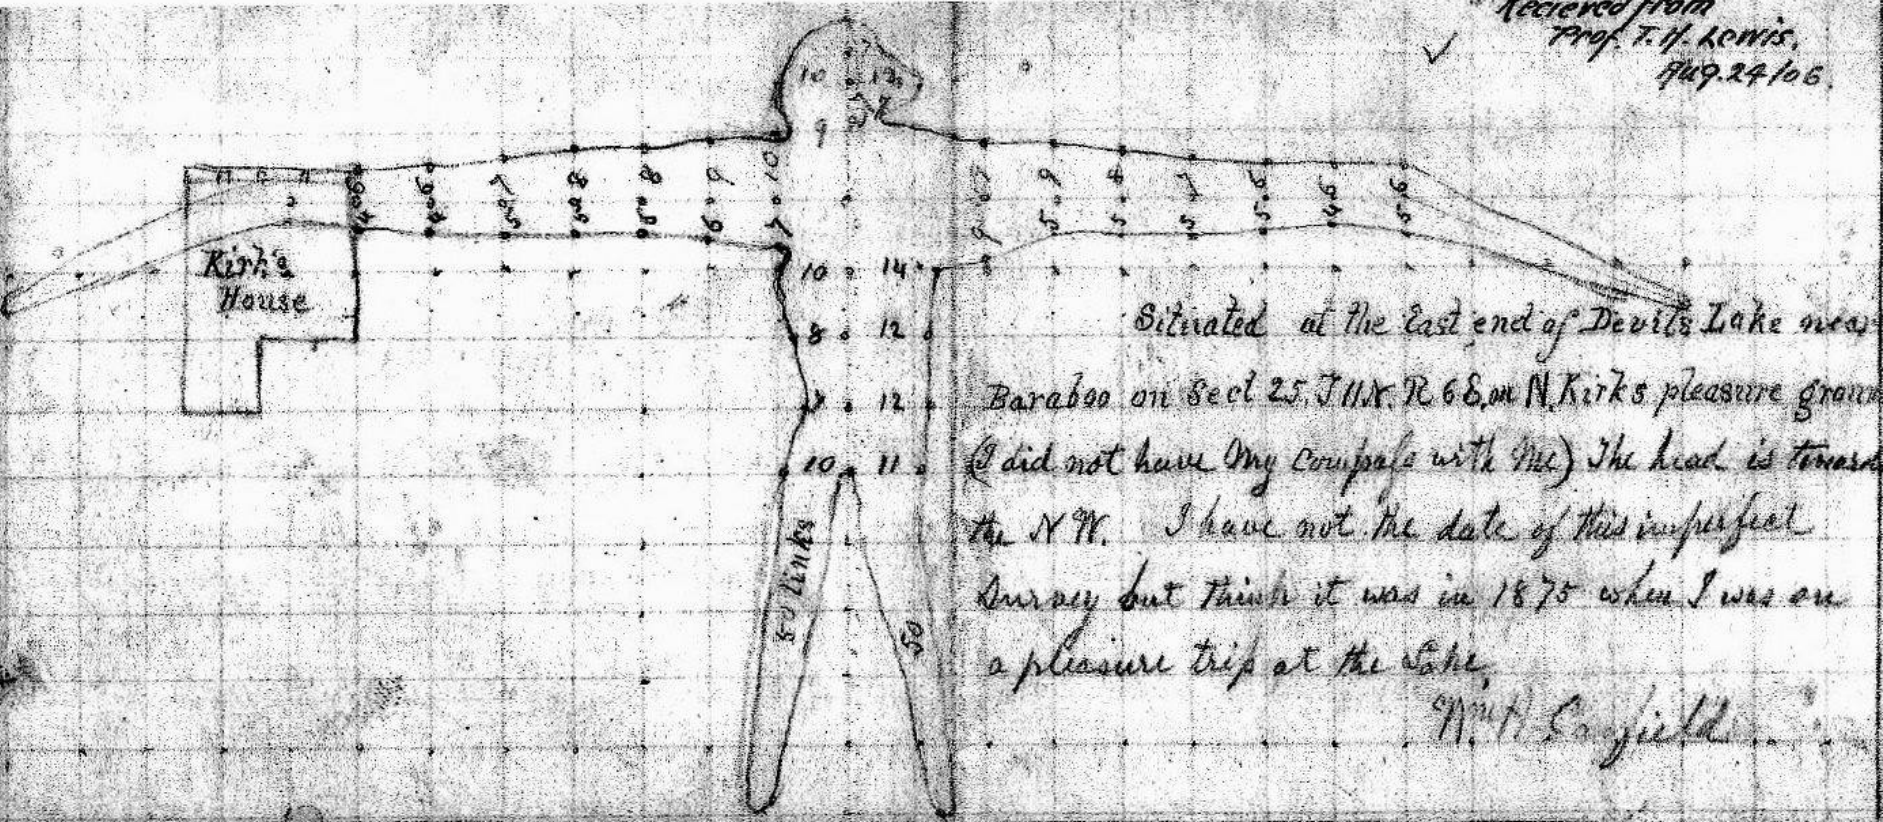 Recieved from
Prof. T. H. Lewis.
Aug. 24/06.
10 12
9
10
7
6 6 7 8 8 9
4 4 5 5 5 6
7 9 8 7 6 6 6
9 5 5 5 5 4 5
8
Kirk's
House
10 14
8 12
12
10 11
50 links
50
Situated at the East end of Devils Lake near
Baraboo on Sect 25. T 11 N. R 6 E. on N. Kirks pleasure groun
(I did not have my compass with me) The head is toward
the N W. I have not the date of this imperfect
Survey but think it was in 1875 when I was on
a pleasure trip at the Lake.
Wm H Canfield